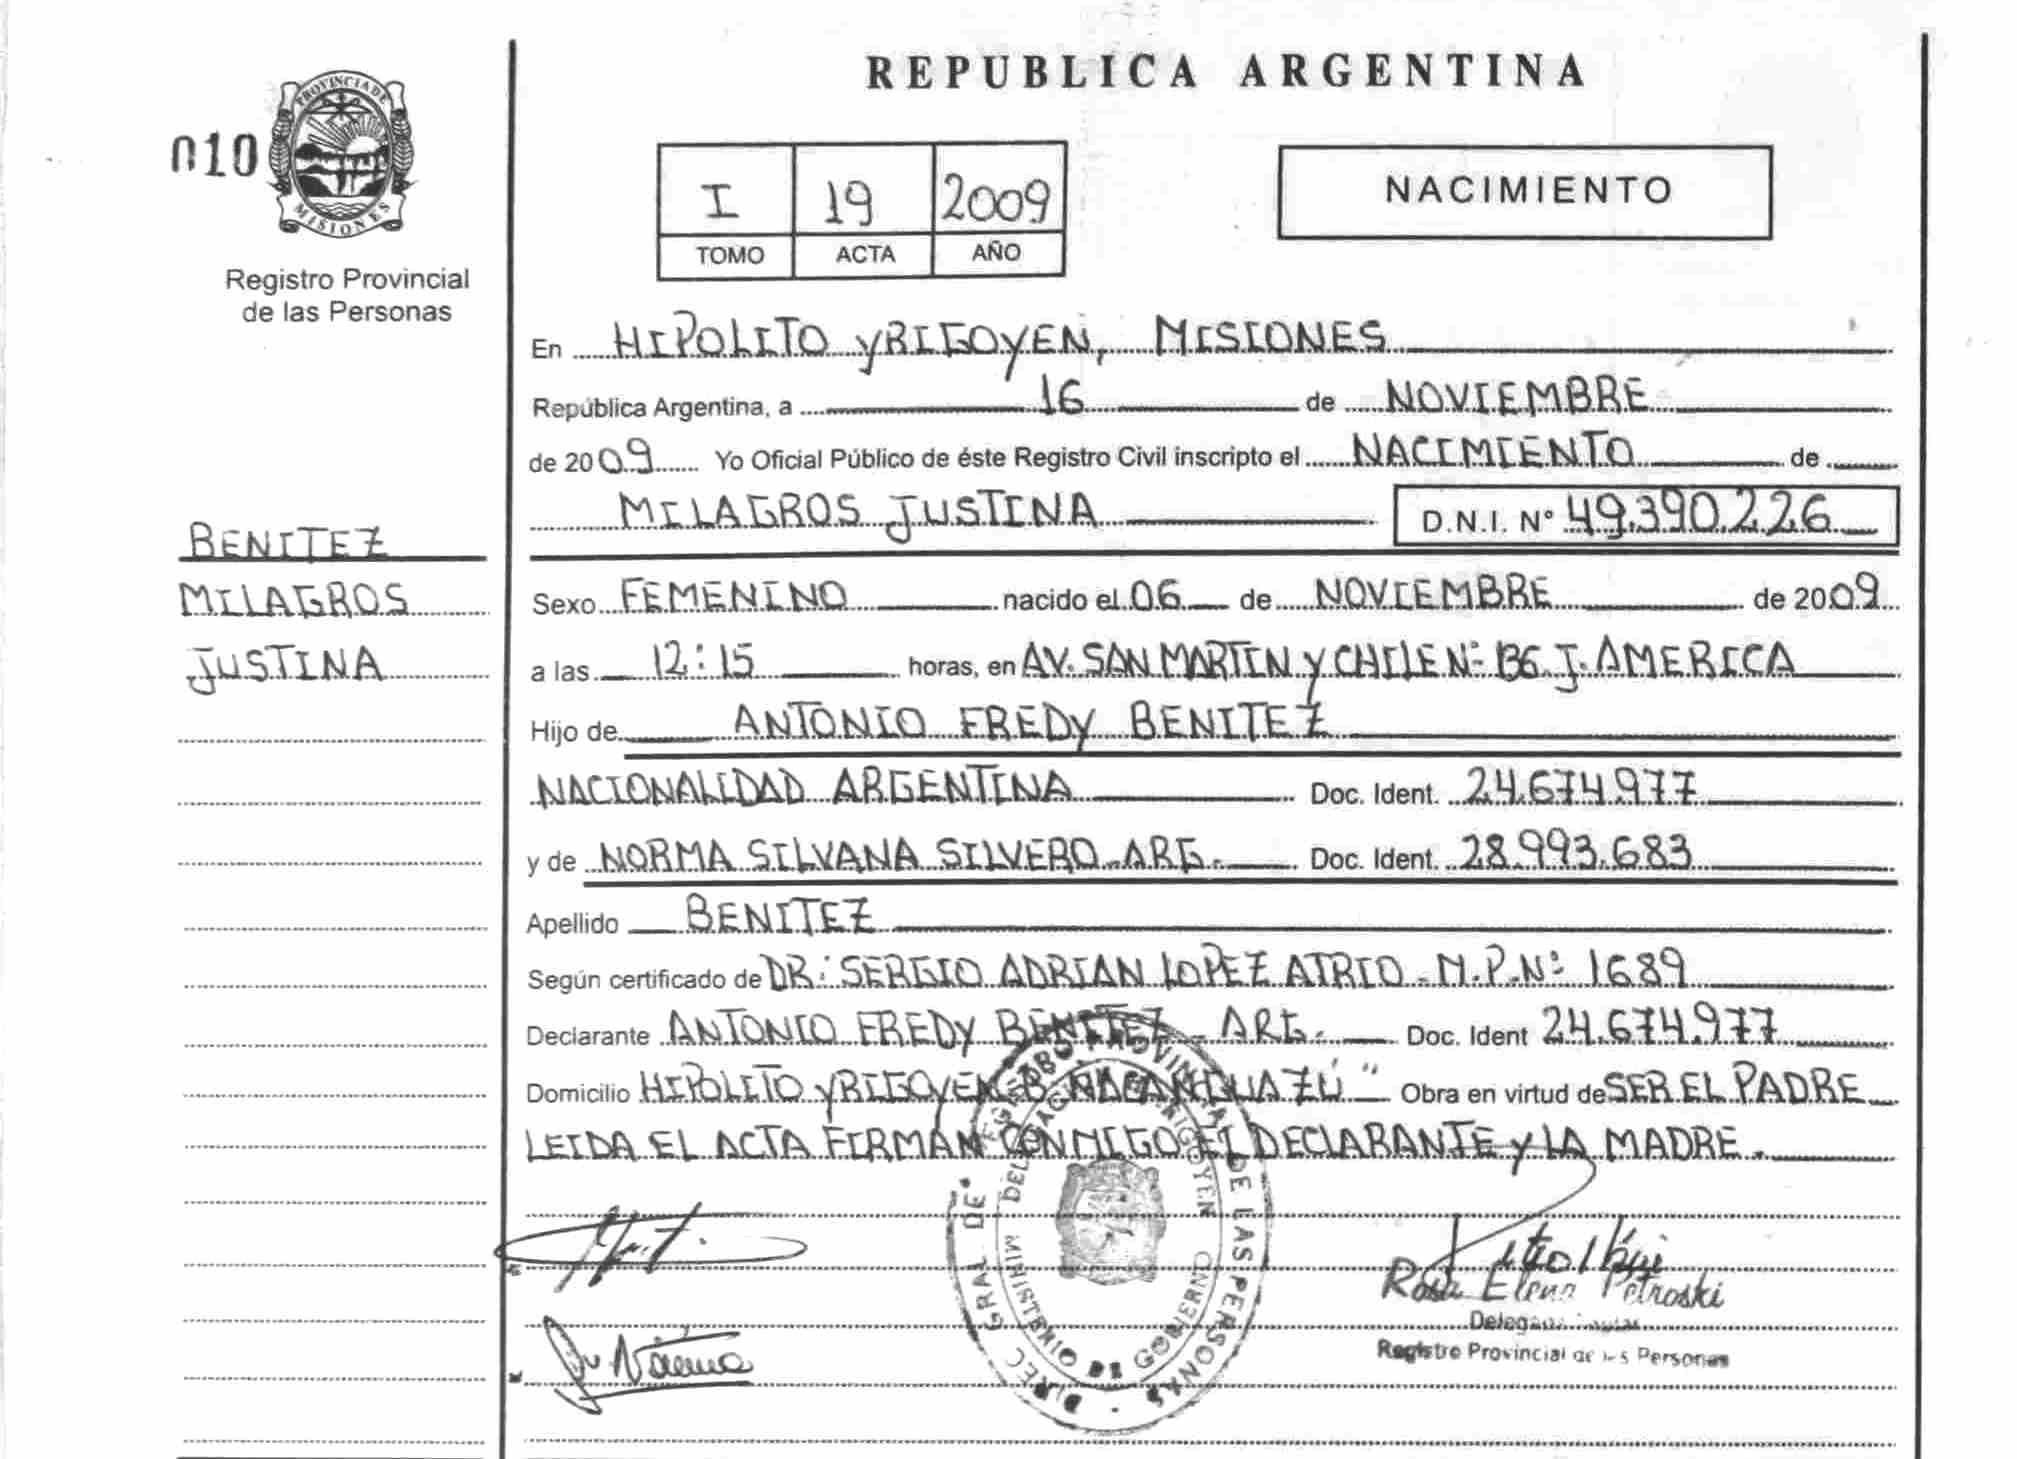 REPUBLICA ARGENTINA
PROVINCIA DE
MISIONES
010
Registro Provincial
de las Personas
I 19 2009
TOMO ACTA AÑO
NACIMIENTO
En HIPOLITO YRIGOYEN, MISIONES
República Argentina, a 16 de NOVIEMBRE
de 2009 Yo Oficial Público de éste Registro Civil inscripto el NACIMIENTO de
MILAGROS JUSTINA D.N.I. N° 49.390.226
BENITEZ
MILAGROS
JUSTINA
Sexo FEMENINO nacido el 06 de NOVIEMBRE de 2009
a las 12:15 horas, en AV. SAN MARTIN Y CHILE N° 136 J. AMERICA
Hijo de ANTONIO FREDY BENITEZ
NACIONALIDAD ARGENTINA Doc. Ident. 24.674.977
y de NORMA SILVANA SILVERO ARG. Doc. Ident. 28.993.683
Apellido BENITEZ
Según certificado de DR: SERGIO ADRIAN LOPEZ ATRIO - M.P.N° 1689
Declarante ANTONIO FREDY BENITEZ - ARG. Doc. Ident 24.674.977
Domicilio HIPOLITO YRIGOYEN Obra en virtud de SER EL PADRE
LEIDA EL ACTA FIRMAN CONMIGO EL DECLARANTE Y LA MADRE.
DIREC GRAL DE REGISTRO PROVINCIAL DE LAS PERSONAS
MINISTERIO DE GOBIERNO
Rosa Elena Petroski
Registro Provincial de las Personas